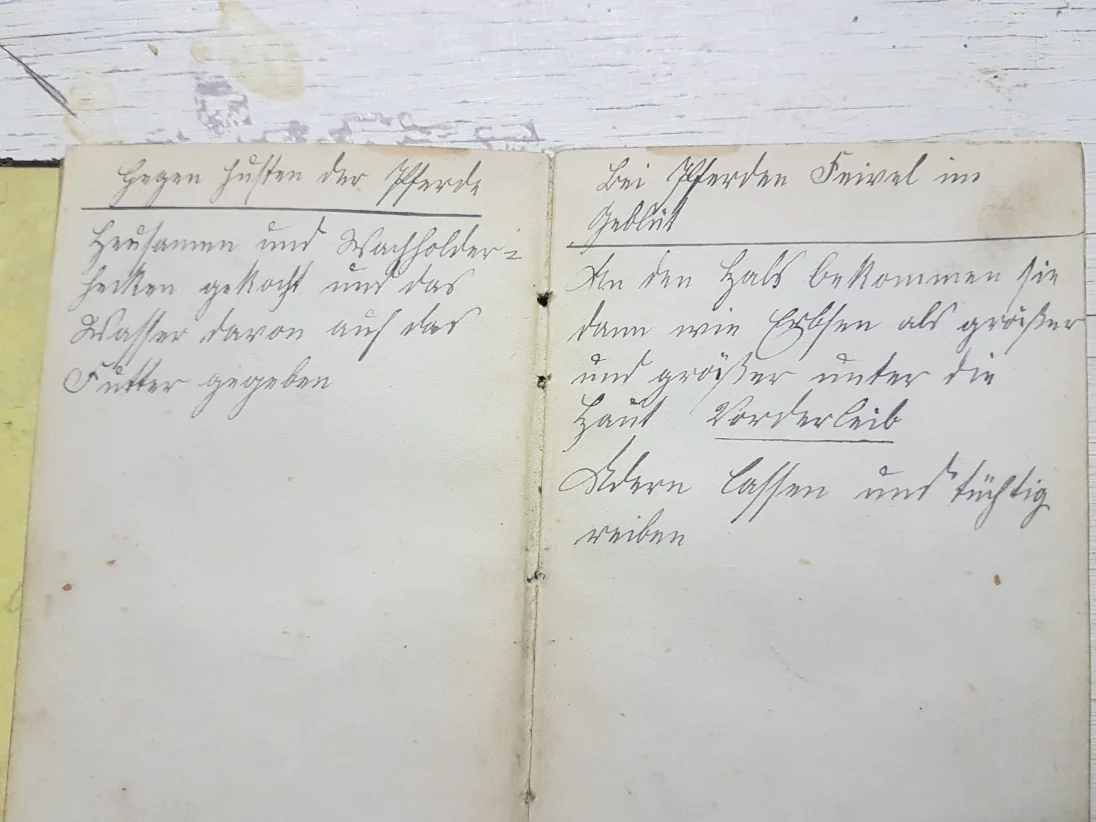 Gegen Husten der Pferde
Heusamen und Wachholder=
hecken gekocht und das
Wasser davon auf das
Futter gegeben
Bei Pferden Feivel im
Geblüt
An den Hals bekommen sie
dann wie Erbsen als größer
und größer unter die
Haut Vorderleib
Adern lassen und tüchtig
reiben